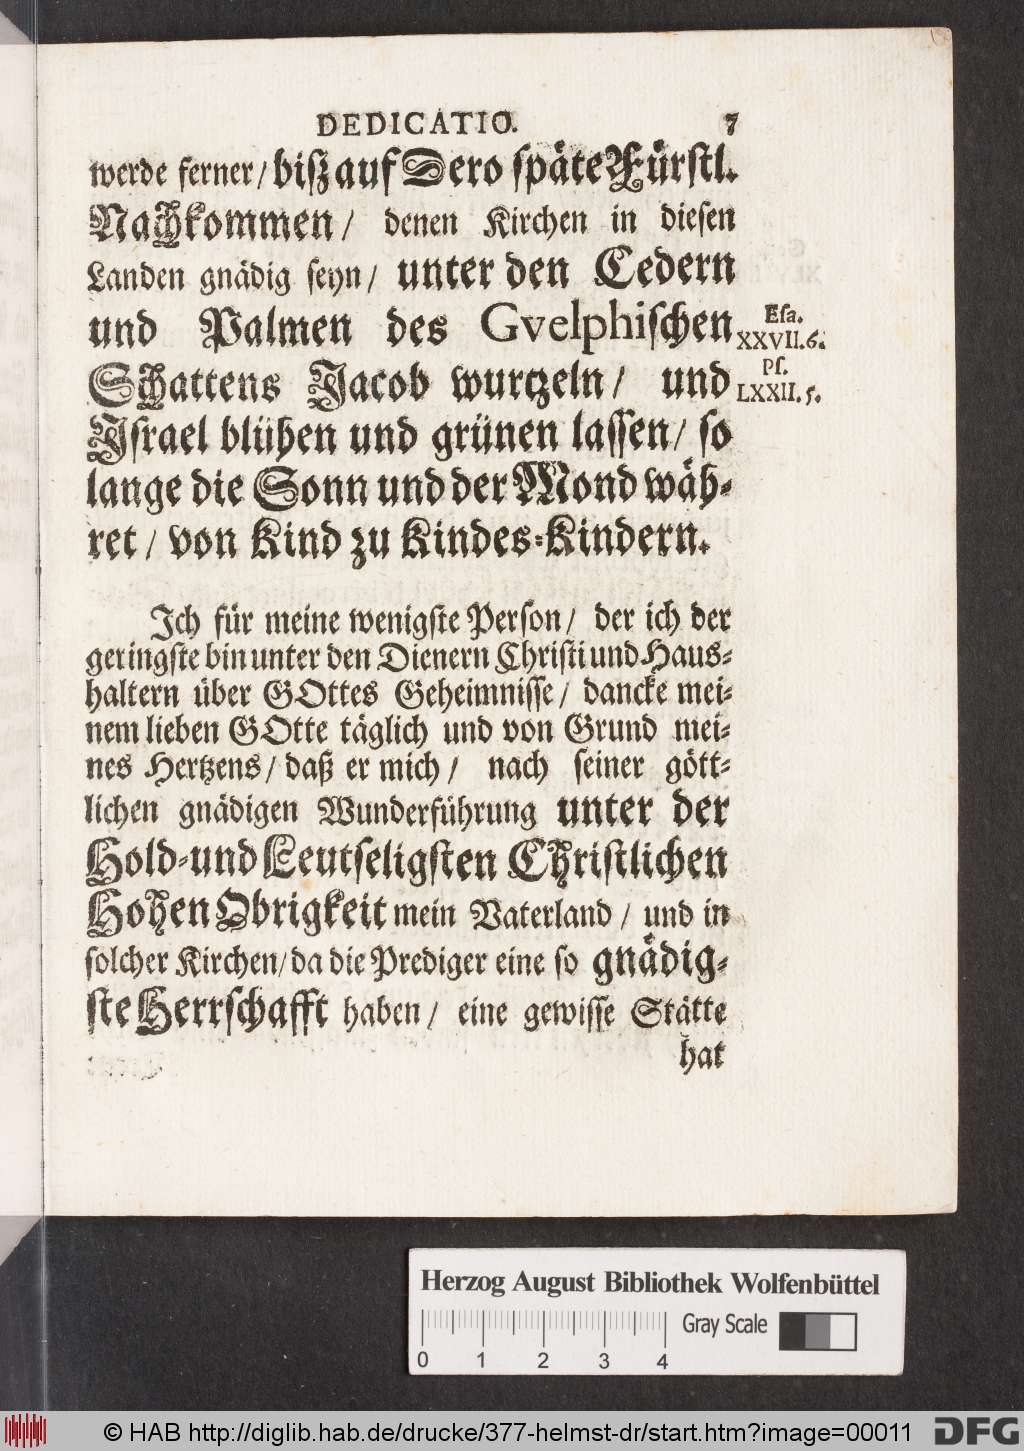 DEDICATIO. 7
werde ferner/ biß auf Dero späte Fürstl.
Nachkommen/ denen Kirchen in diesen
Landen gnädig seyn/ unter den Cedern
und Palmen des Gvelphischen
Esa.
XXVII.6.
Schattens Jacob wurtzeln/ und
Ps.
LXXII.5.
Israel blühen und grünen lassen/ so
lange die Sonn und der Mond wäh-
ret/ von Kind zu Kindes-Kindern.
Ich für meine wenigste Person/ der ich der
geringste bin unter den Dienern Christi und Haus-
haltern über GOttes Geheimnisse/ dancke mei-
nem lieben GOtte täglich und von Grund mei-
nes Hertzens/ daß er mich/ nach seiner gött-
lichen gnädigen Wunderführung unter der
Hold-und Leutseligsten Christlichen
Hohen Obrigkeit mein Vaterland/ und in
solcher Kirchen/ da die Prediger eine so gnädig-
ste Herrschafft haben/ eine gewisse Stätte
hat
Herzog August Bibliothek Wolfenbüttel
Gray Scale
0 1 2 3 4
© HAB http://diglib.hab.de/drucke/377-helmst-dr/start.htm?image=00011
DFG